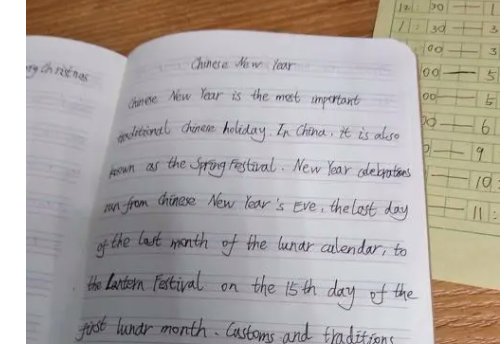 Christmas
Chinese New Year
Chinese New Year is the most important
traditional chinese holiday. In China, it is also
known as the Spring Festival. New Year celebrations
run from chinese New Year's Eve, the last day
of the last month of the lunar calendar, to
the Lantern Festival on the 15th day of the
first lunar month. Customs and traditions
12:30 — 1
1:30 — 3
:00 — 3
:00 — 5
:00 — 5
00 — 6
— 9
— 10
11: